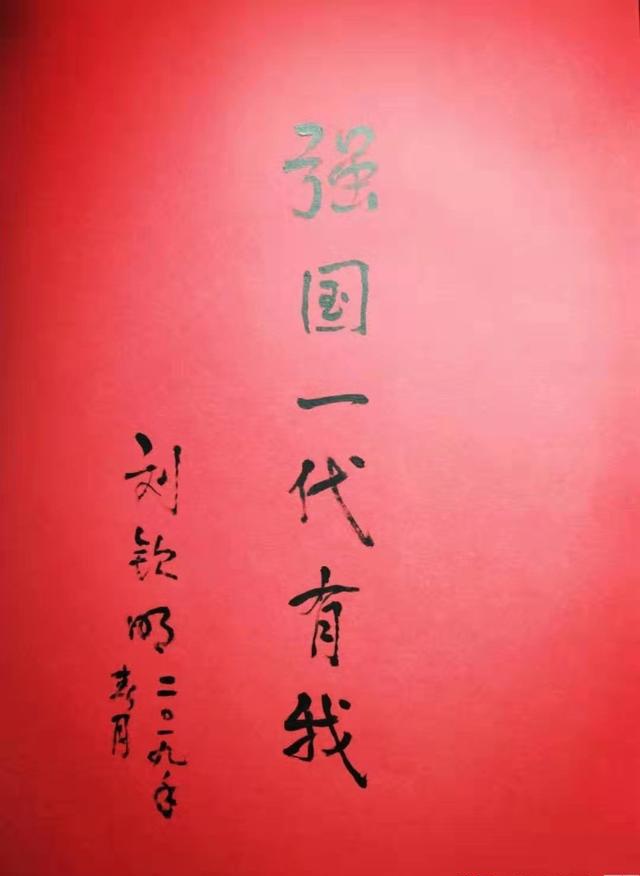 强国一代有我
刘钦明
二〇一九年
春月